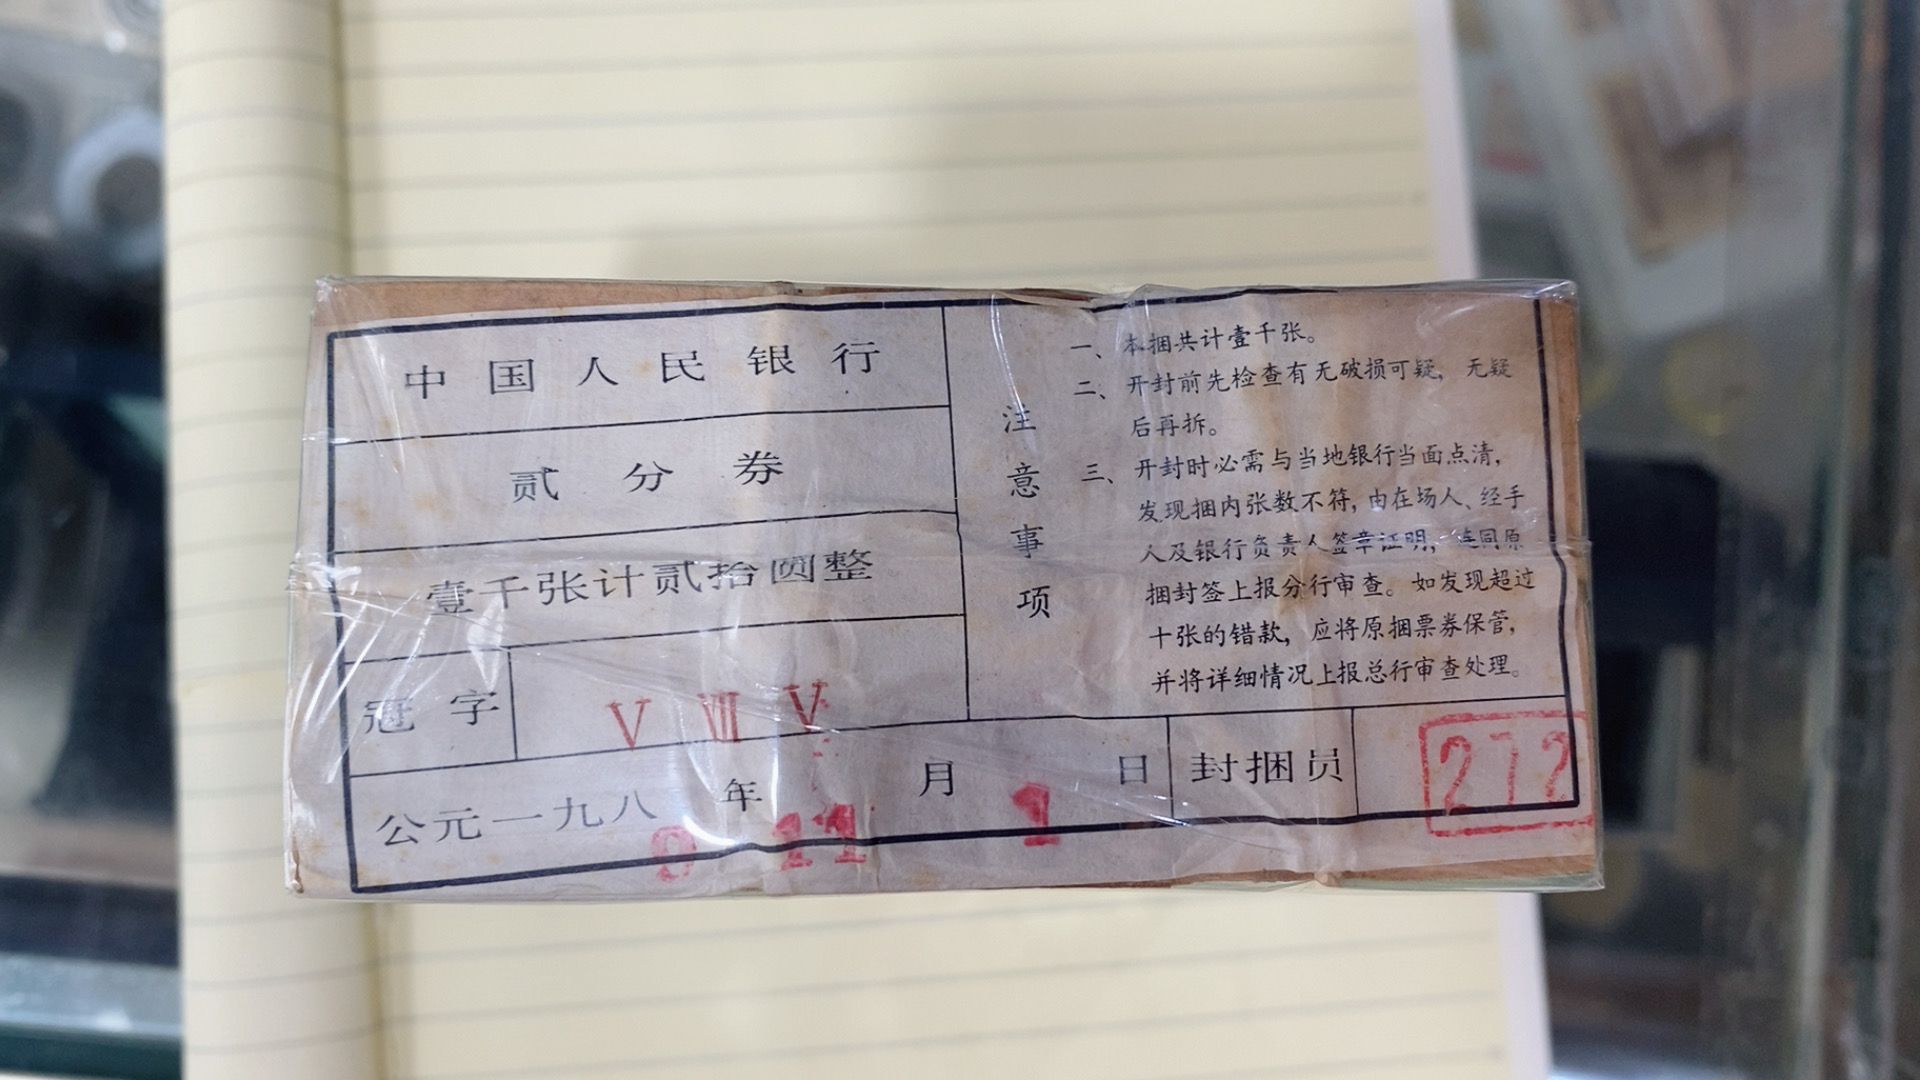 中国人民银行
贰分券
壹千张计贰拾圆整
冠字 V VIII V
公元一九八9年11月1日
封捆员 272
注意事项
一、本捆共计壹千张。
二、开封前先检查有无破损可疑，无疑
后再拆。
三、开封时必需与当地银行当面点清，
发现捆内张数不符，由在场人、经手
人及银行负责人签章证明，连同原
捆封签上报分行审查。如发现超过
十张的错款，应将原捆票券保管，
并将详细情况上报总行审查处理。